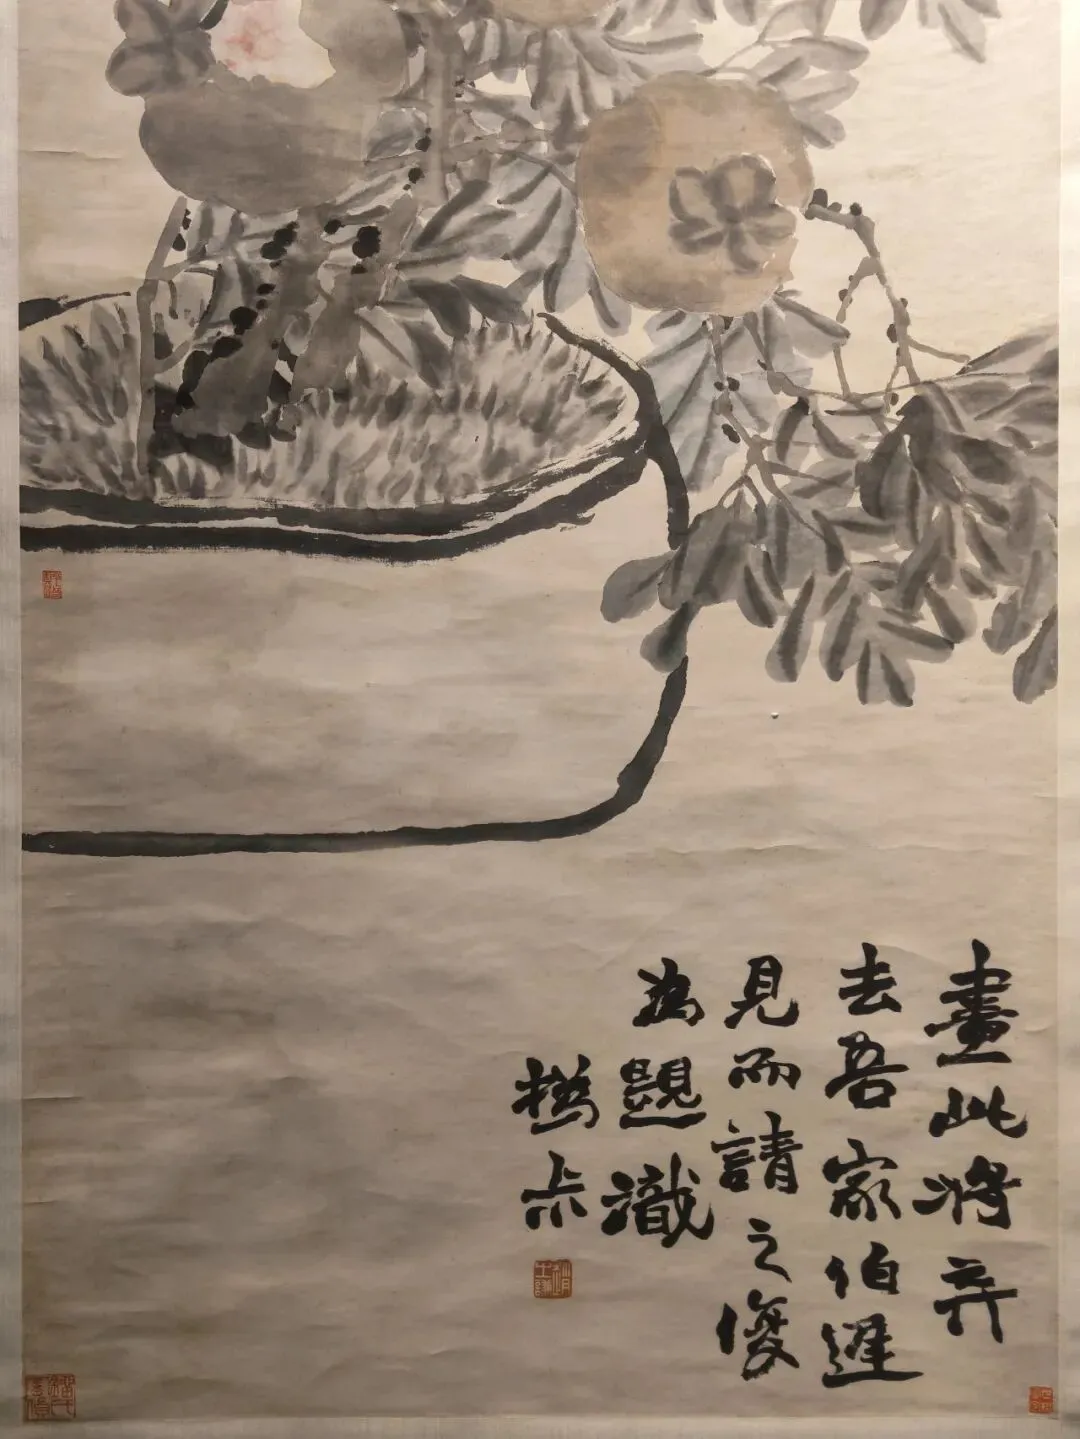 畫此將弃
去吾家伯遲
見而請之復
為題識
撝尗